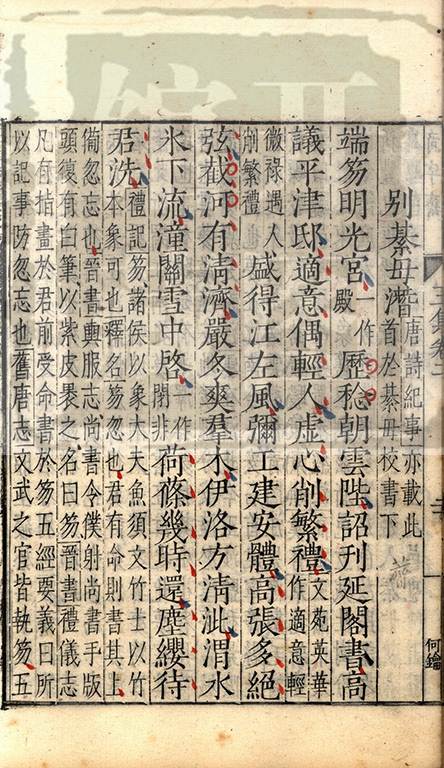 別綦毋潛唐詩紀事亦載此首於綦毋校書下
端笏明光宮一作殿歷稔朝雲陛詔刊延閣書高
議平津邸適意偶輕人虛心削繁禮文苑英華作適意輕
微祿遇人削繁禮也盛得江左風彌工建安體高張多絕
弦截河有清濟嚴冬爽羣木伊洛方清泚渭水
氷下流潼關雪中啓一作閉非荷蓧幾時還塵纓待
君洗禮記笏諸侯以象大夫魚須文竹士以竹
本象可也釋名笏忽也君有命則書其上
備忽忘也晉書輿服志尚書令僕射尚書手版
頭復有白筆以紫皮裹之名曰笏晉書禮儀志
凡有指畫於君前受命書於笏五經要義曰所
以記事防忽忘也舊唐志文武之官皆執笏五
何鑰